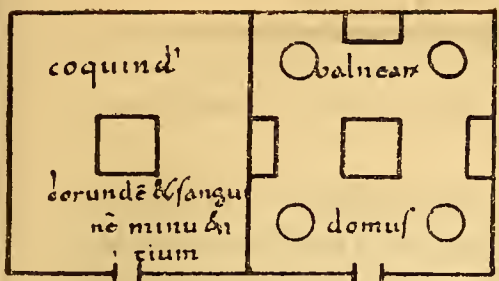 coquina
eorundē & sangui
nē minu&n
tium
balneaꝝ
domuſ